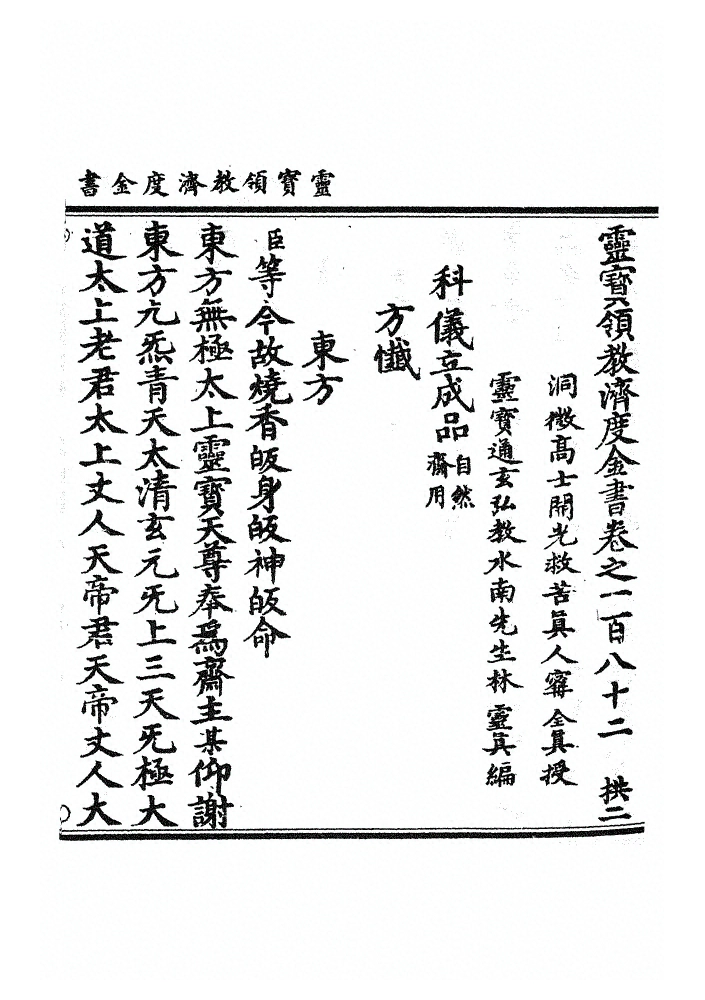 靈寶領教濟度金書
靈寶領教濟度金書卷之一百八十二 拱二
洞微高士開光救苦真人甯全真授
靈寶通玄弘教水南先生林靈真編
科儀立成品自然齋用
方懺
東方
臣等今故燒香皈身皈神皈命
東方無極太上靈寶天尊奉爲齋主某仰謝
東方九炁青天太清玄元旡上三天旡極大
道太上老君太上丈人天帝君天帝丈人大